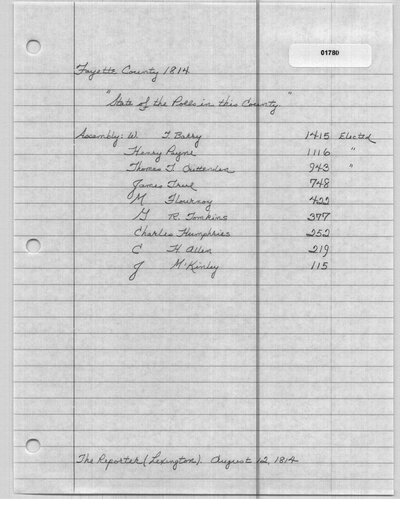 01780
Fayette County 1814
"State of the Polls in this County"
Assembly: W. T. Barry 1415 Elected
Henry Payne 1116 "
Thomas T. Crittenden 943 "
James True 748
M Flournoy 422
G R. Tomkins 377
Charles Humphries 252
C H. Allen 219
J McKinley 115
The Reporter (Lexington). August 12, 1814